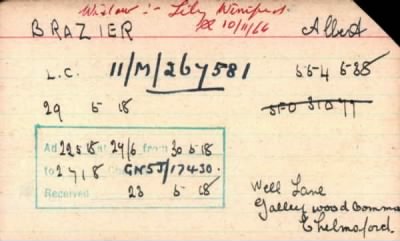 Widow :- Lily Winifred.
10/11/66
BRAZIER Albert
L.C. 11/M/267581 554 538
29 5 18
Ad 29518 at 29/6 from 30 5 18
to 2 7 18 GN5J/17430.
Received 23 5 18
Well Lane
Galleywood Common
Chelmsford.